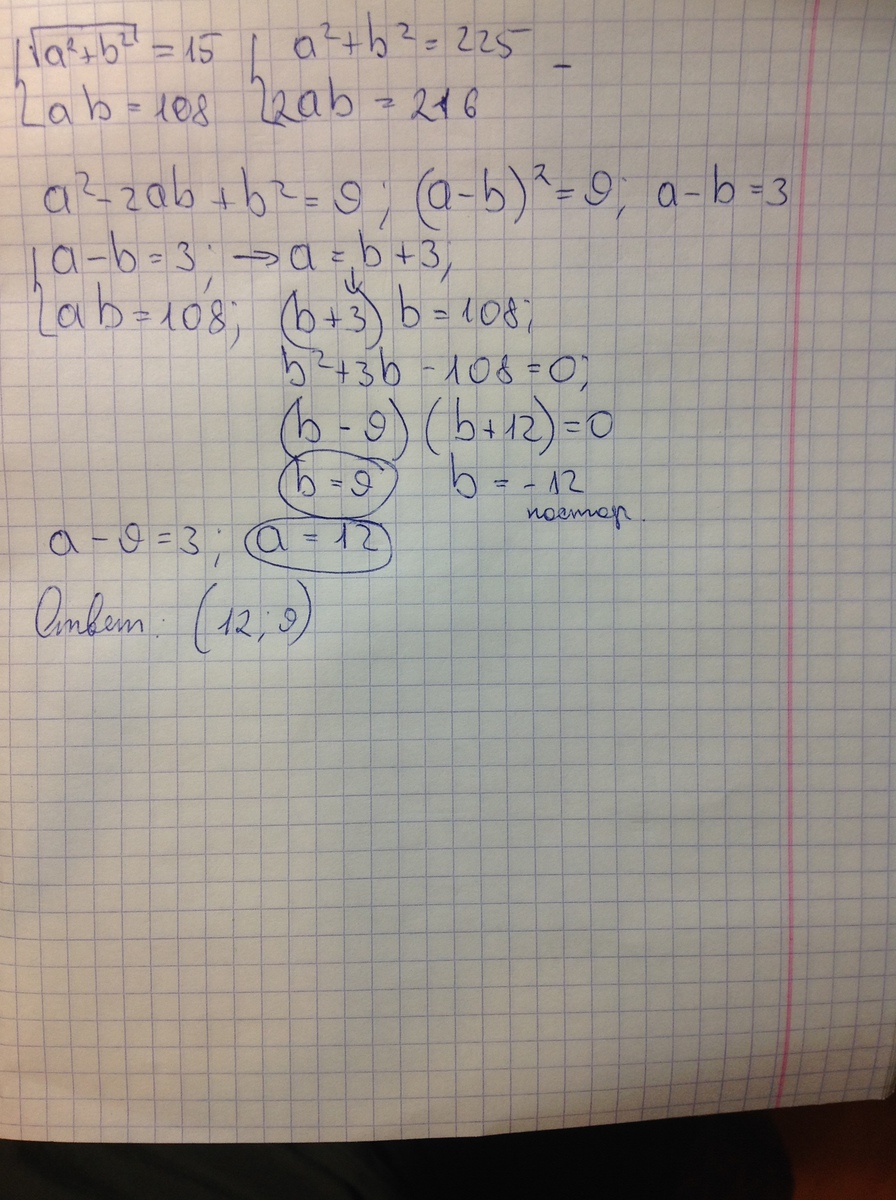 { √(a²+b²) = 15 { a²+b² = 225 –
{ ab = 108 { 2ab = 216
a² - 2ab + b² = 9; (a-b)² = 9; a-b = 3
{ a-b = 3; → a = b+3;
{ ab = 108; (b+3) b = 108;
b² + 3b - 108 = 0;
(b - 9) (b+12) = 0
b = 9 b = -12
постор.
a - 9 = 3; a = 12
Ответ: (12; 9)